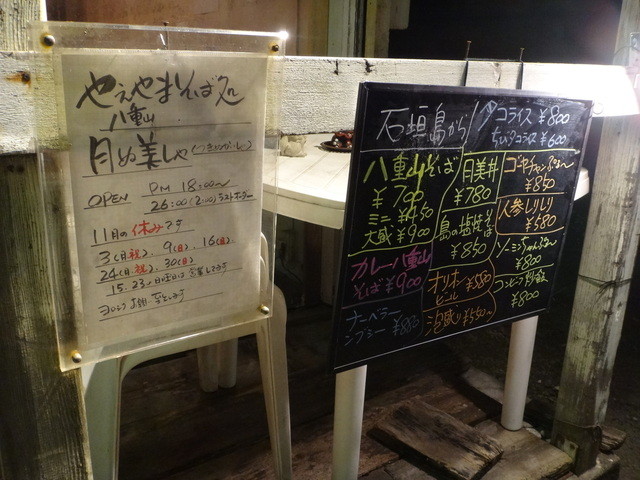 やえやまそば処
八重山
月ぬ美しゃ(つきぬかいしゃ)
OPEN PM 18:00〜
26:00(2:00)ラストオーダー
11月の休みです
3(月祝)、9(日)、16(日)、
24(月祝)、30(日)
15、23、日曜日は営業してます
ヨロシクお願い致します
石垣島から
タコライス ¥800
ちびタコライス ¥600
八重山そば
¥700
ミニ ¥450
大盛 ¥900
月美丼
¥780
ゴーヤチャンプルー
¥850
島の塩焼そば
¥850
人参しりしり
¥580
カレー八重山
そば ¥900
ソーミンちゃんぷるー
¥800
オリオン
ビール ¥580
コンビーフ炒飯
¥800
ナーベラー
ンブシー ¥880
泡盛り ¥550〜